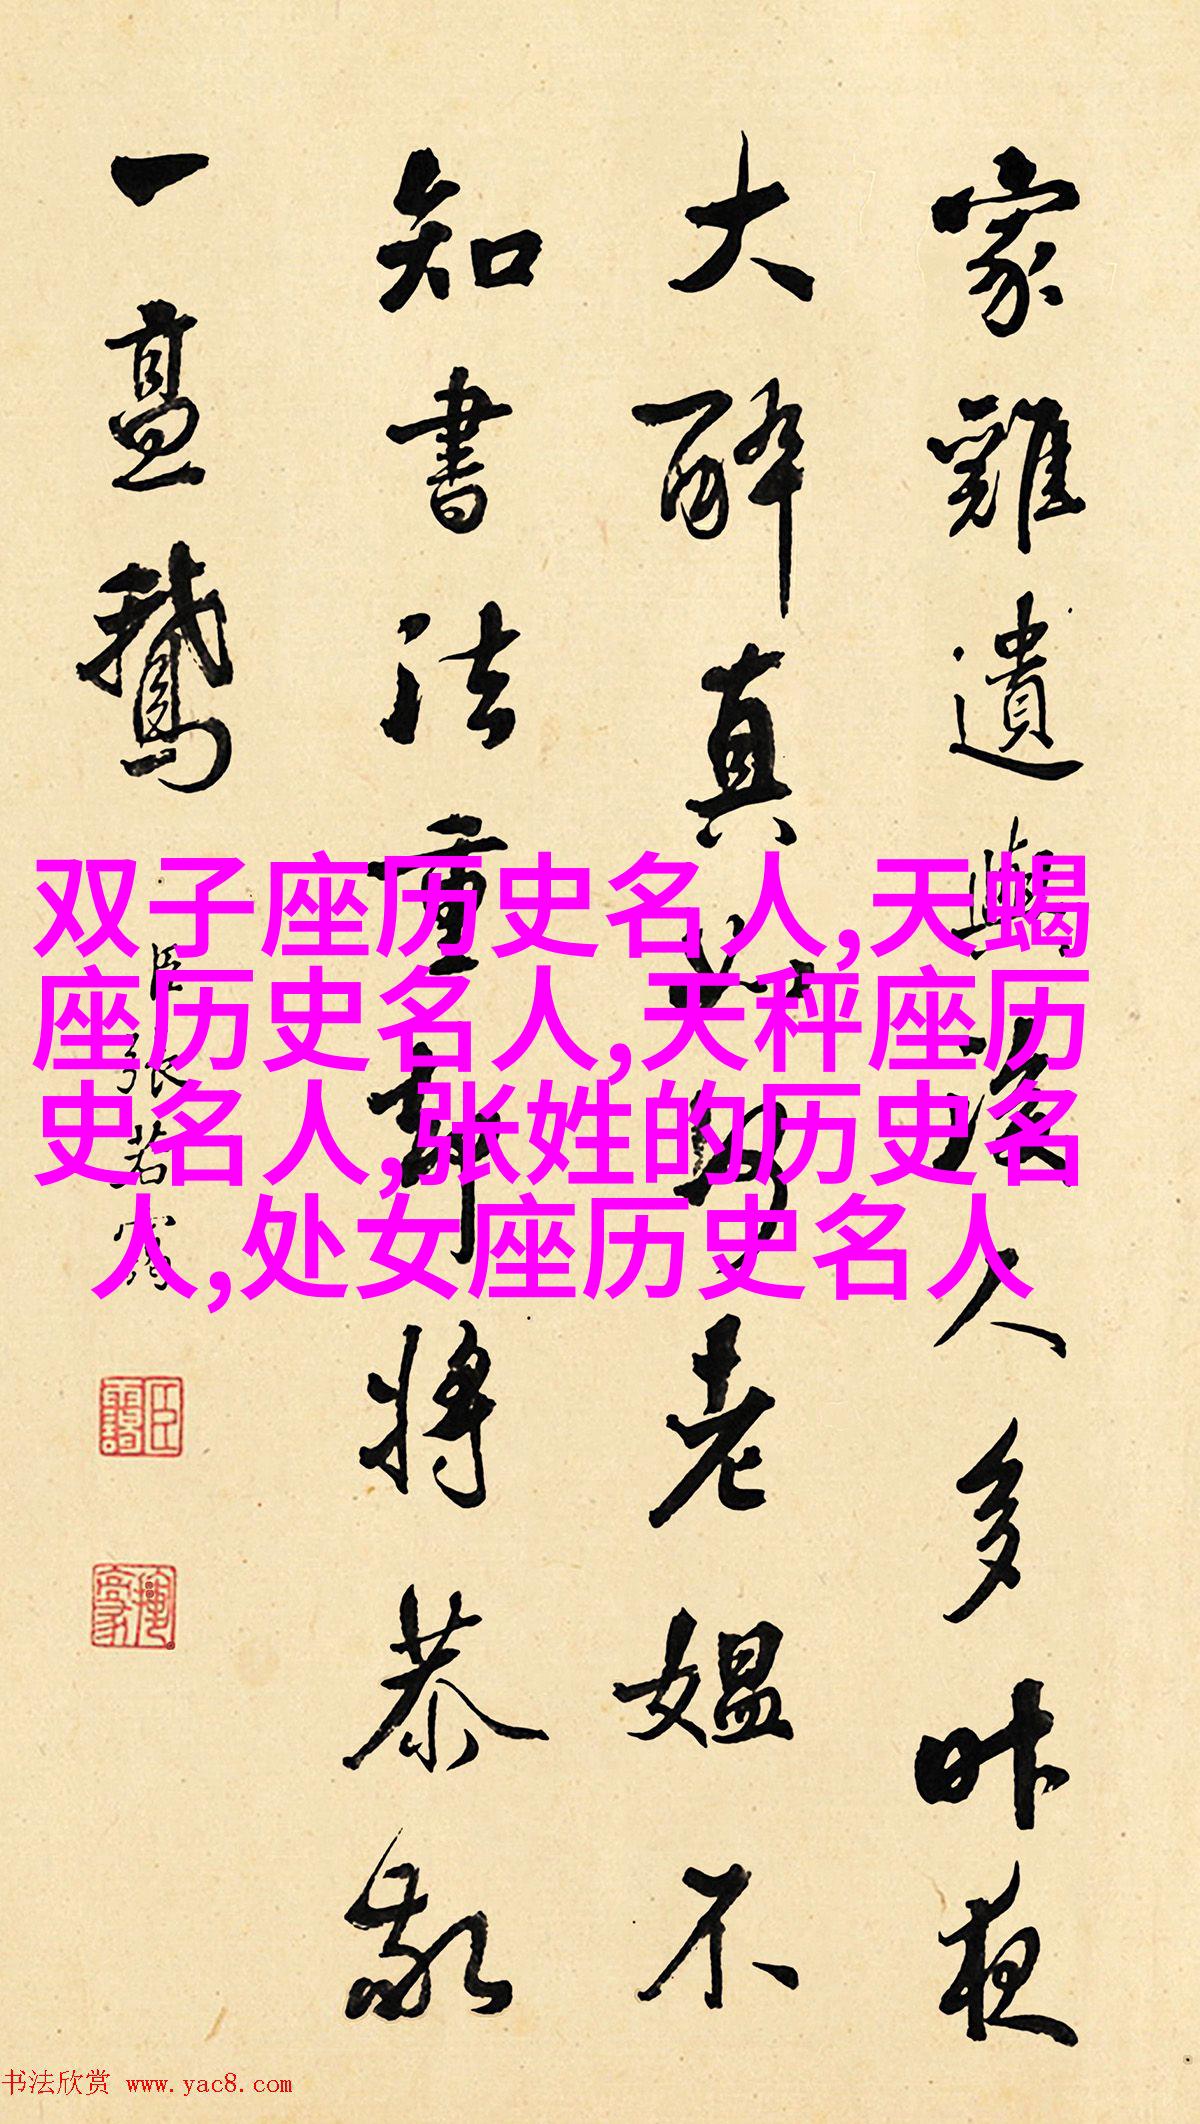 家雞遺與後人多昨夜
大醉真如
老媼不
知書法重
將恭敬
一
鵝
臣張若靄
双子座历史名人,天蝎
座历史名人,天秤座历
史名人,张姓的历史名
人,处女座历史名人
书法欣赏 www.yac8.com